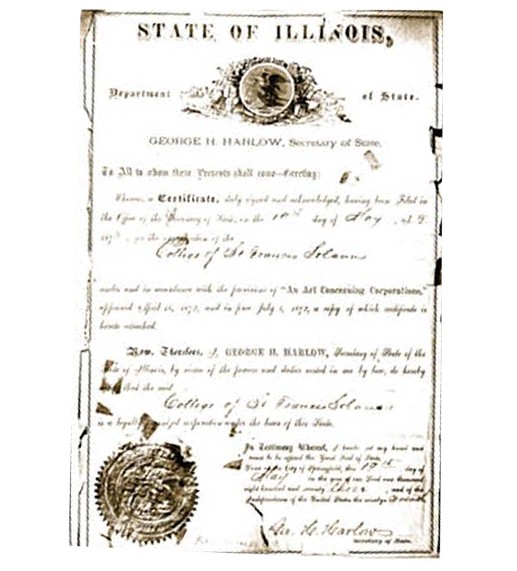 STATE OF ILLINOIS,
Department of State.
GEORGE H. HARLOW, Secretary of State.
To All to whom these Presents shall come—Greeting:
Whereas, a Certificate, duly signed and acknowledged, having been filed in
the Office of the Secretary of State, on the day of May, A.D.
187 , for the organization of the
College of St Francis Solanus
under and in accordance with the provisions of "An Act Concerning Corporations,"
approved April 18, 1872, and in force July 1, 1872, a copy of which certificate is
hereto attached.
Now, Therefore, I, GEORGE H. HARLOW, Secretary of State of the
State of Illinois, by virtue of the powers and duties vested in me by law, do hereby
that the said
College of St Francis Solanus
is a legally organized corporation under the laws of this State.
In Testimony Whereof, I hereto set my hand and
cause to be affixed the Great Seal of State,
Done at the City of Springfield, this day of
May in the year of our Lord one thousand
eight hundred and seventy three and of the
Independence of the United States the ninety
Geo. H. Harlow
Secretary of State.